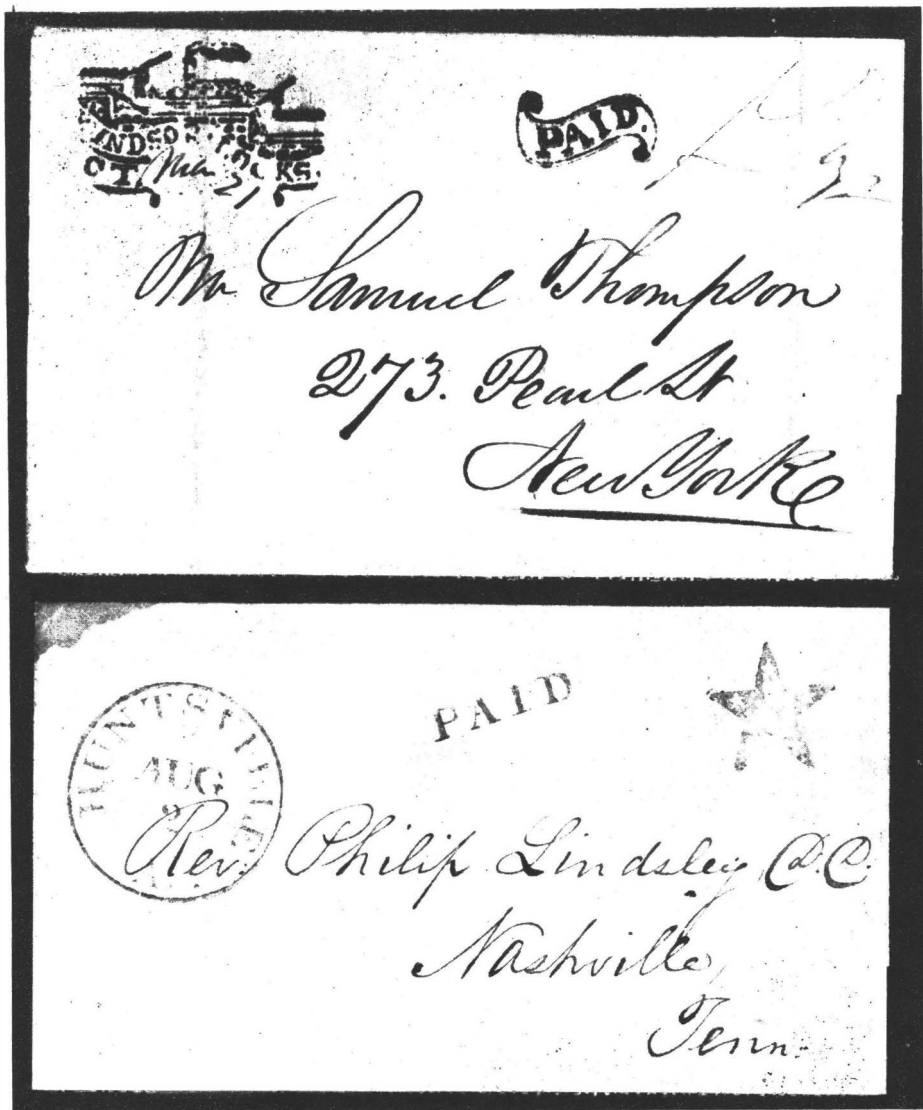 PAID.
Mar 21
CT.
Mr Samuel Thompson
273. Pearl St
New York
HUNTSVILLE
AUG
PAID
Rev. Philip Lindsley D.D.
Nashville,
Tenn.